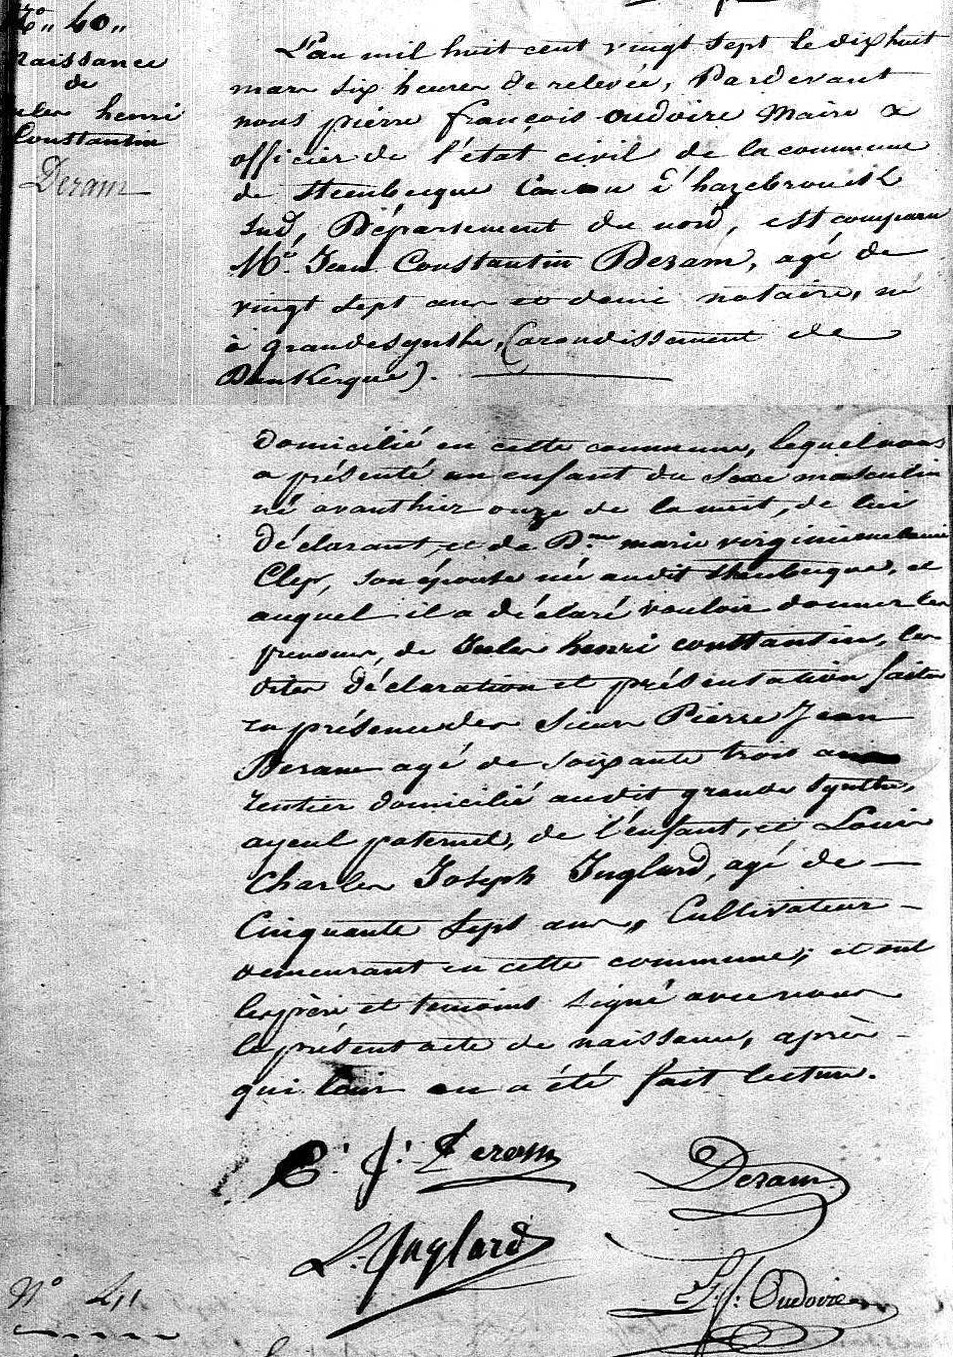 N° 40,,
naissance
de
Jules henri
Constantin
Deram
L'an mil huit cent vingt sept le dix huit
mars six heures de relevée, Pardevant
nous pierre françois oudoire Maire &
officier de l'état civil de la commune
de Steenbecque Canton d'hazebrouck
Sud, Département du nord, est comparu
Me. Jean Constantin Deram, agé de
vingt sept ans et demi notaire, né
à grandesynthe, (arondissement de
Dunkerque).
domicilié en cette commune, lequel nous
a présenté un enfant du Sexe masculin
né avanthier onze de la nuit, de lui
déclarant, et de Dme marie virginie
Clep, son épouse née audit Steenbecque, et
auquel il a déclaré vouloir donner les
prenoms, de Jules henri constantin, les
dites déclaration et présentation faites
en présence des Sieurs Pierre Jean
Deram agé de soixante trois ans
rentier domicilié audit grande Synthe,
ayeul paternel, de l'enfant, et Louis
Charles Joseph Inglard, agé de
Cinquante Sept ans,, Cultivateur
demeurant en cette commune; et ont
les père et temoins signé avec nous
le présent acte de naissance, après
qui leur en a été fait lecture.
P. J. Deram Deram
L. Inglard
P. f. Oudoire
N° 41